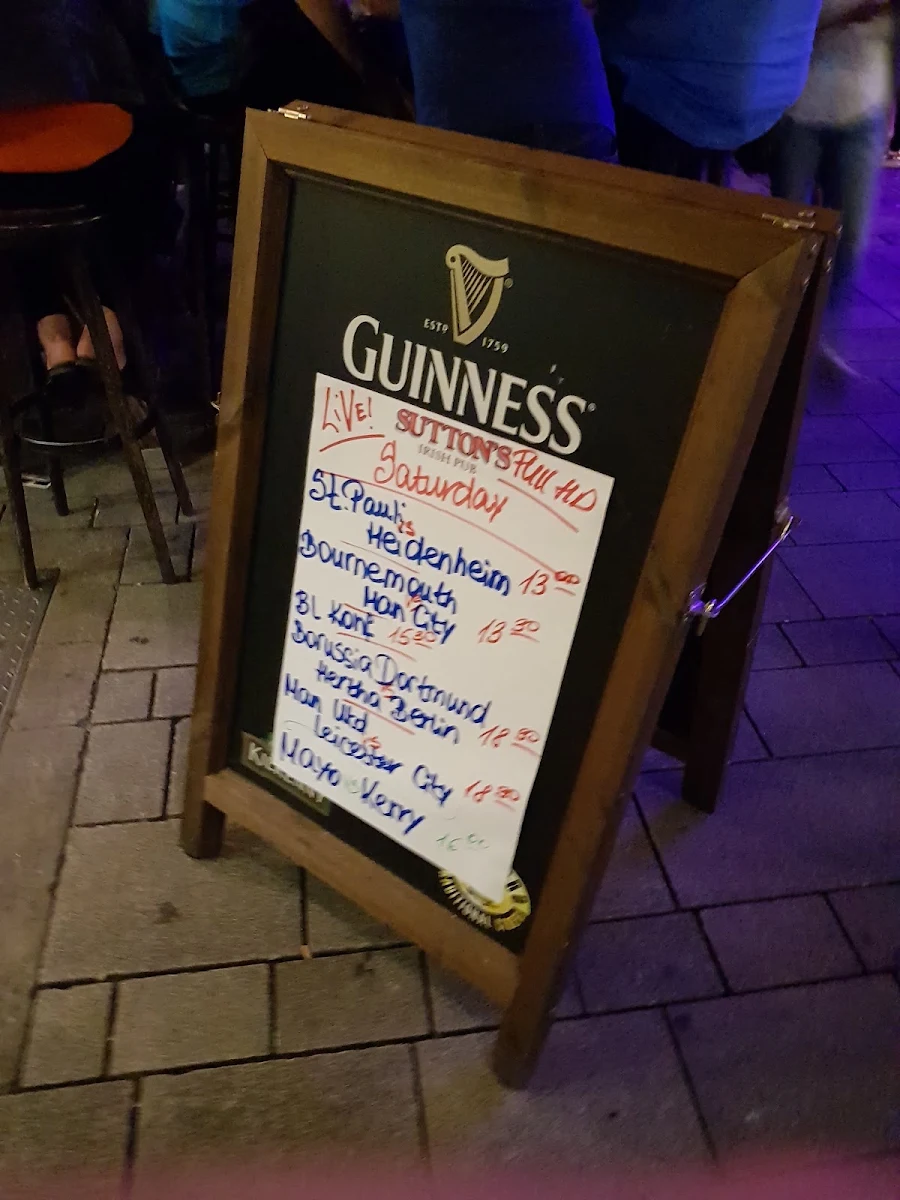 ESTD 1759
GUINNESS
LiVE! SUTTON'S Full HD
IRISH PUB
Saturday
St. Pauli vs
Heidenheim 13 00
Bournemouth vs
Man City 13 30
BL Konf. 15 30
Borussia Dortmund
vs
Hertha Berlin 18 30
Man Utd
vs
Leicester City 18 30
Mayo vs Kerry 16 00